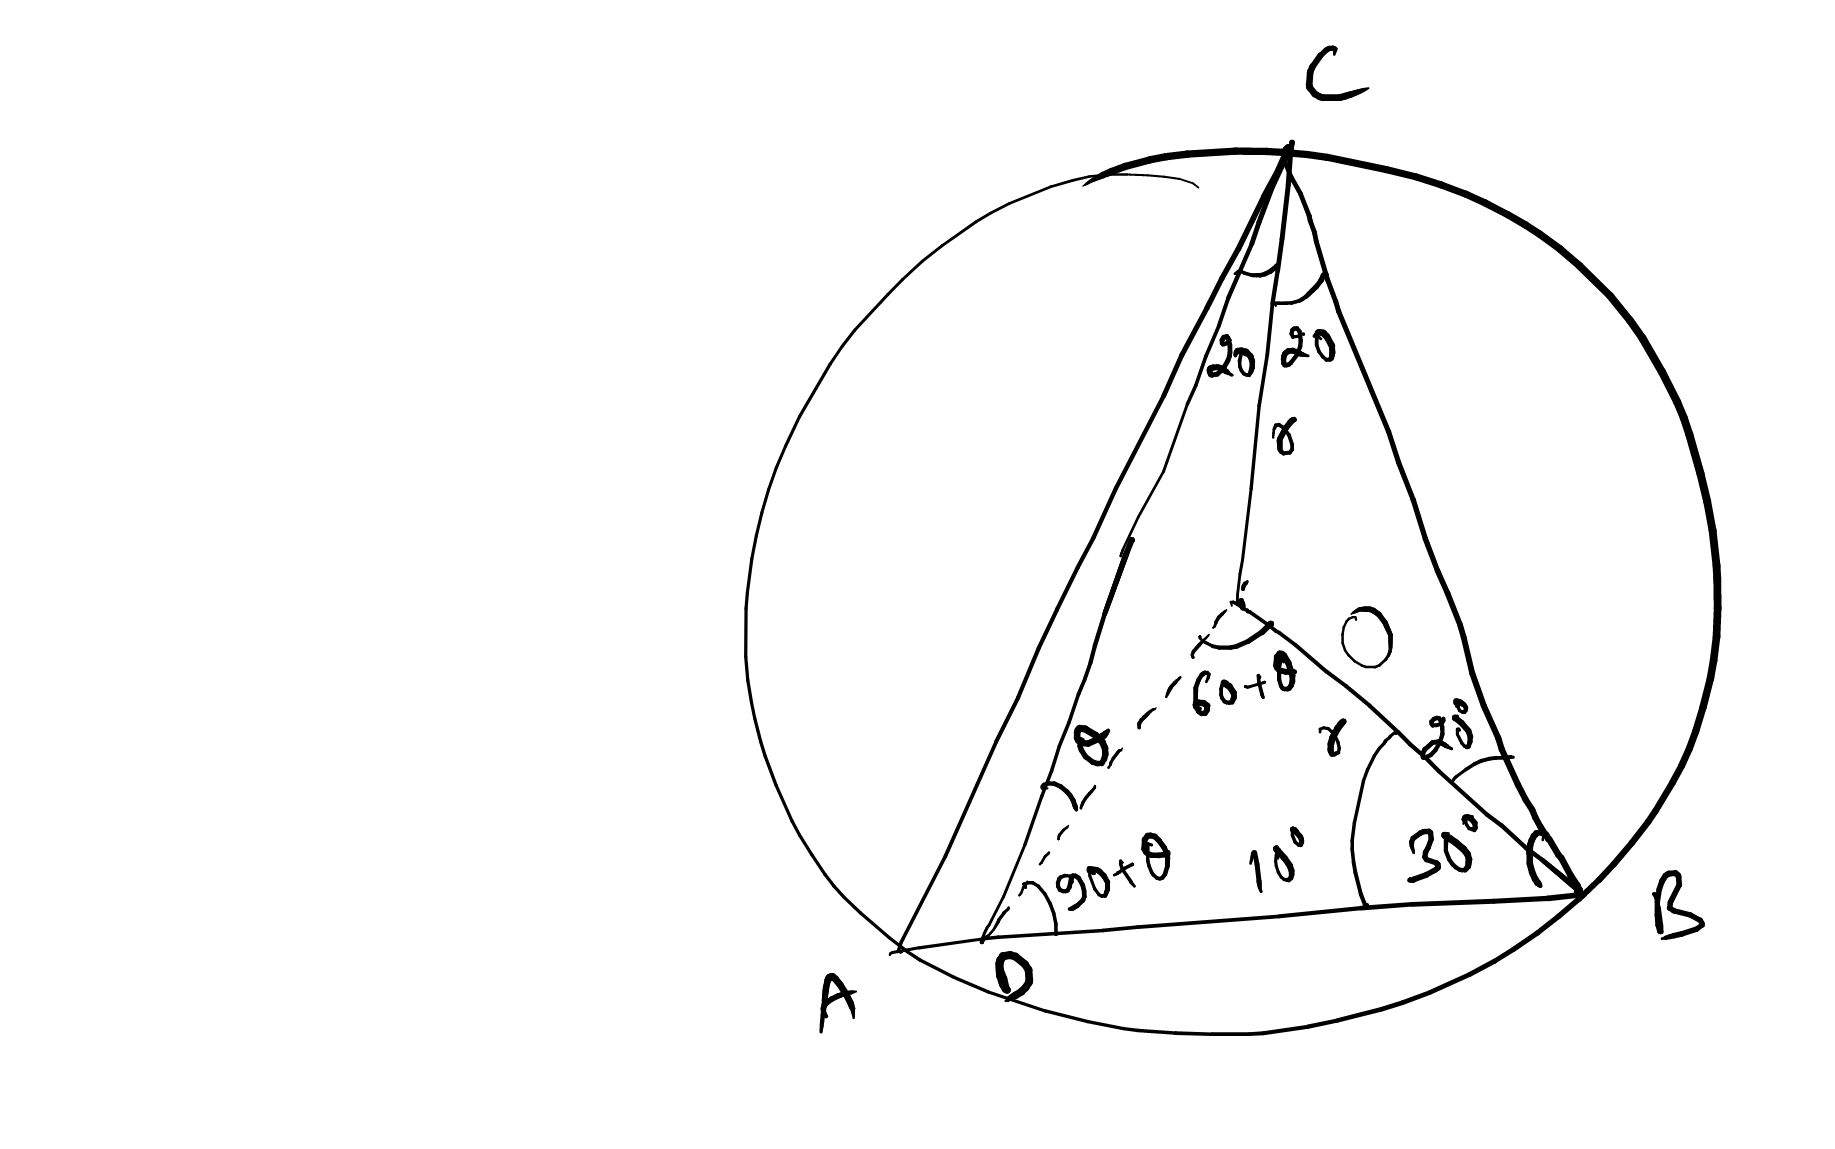 C
20
20
r
O
60+θ
r
20°
θ
90+θ
10°
30°
B
D
A